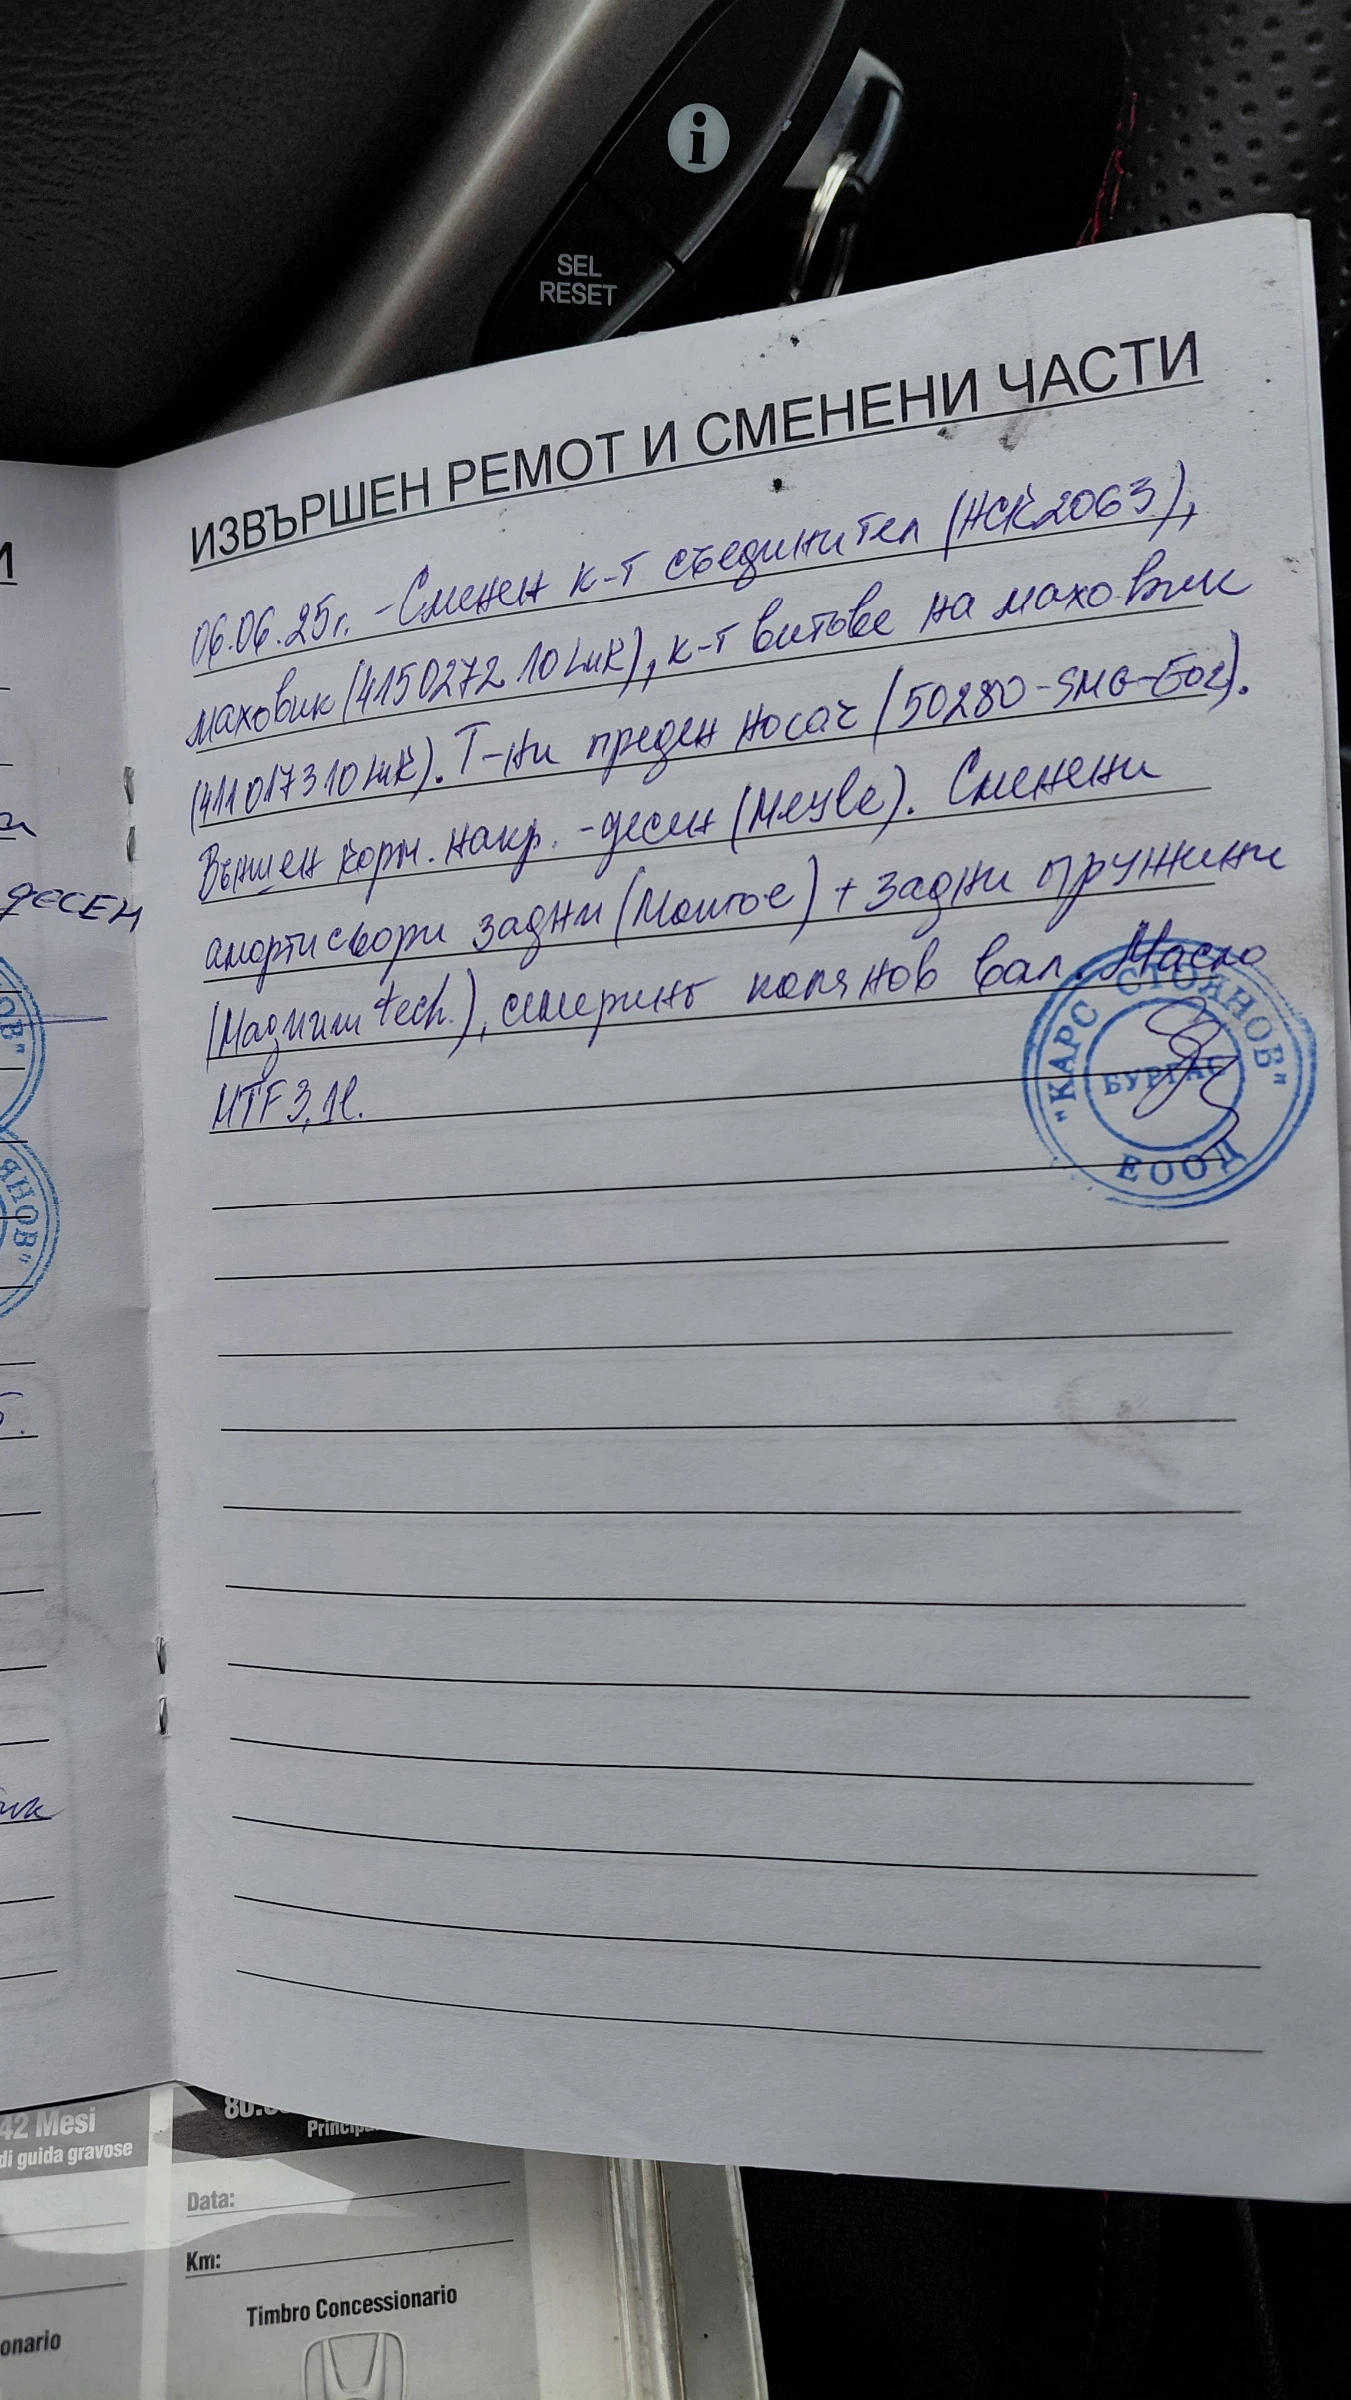 i
SEL
RESET
И
ИЗВЪРШЕН РЕМОТ И СМЕНЕНИ ЧАСТИ
06.06.25г. - Сменен к-т съединител (HCK2063),
маховик (415027210 LuK), к-т витове на маховик
(411017310 LuK). Т-ни преден носач (50280-SMG-E02).
Външен корм. накр. - десен (Meyle). Сменени
амортисьори задни (Monroe) + задни пружини
(Magnum tech.), семеринг колянов вал. Масло
MTF3, 1l.
ДЕСЕН
"КАРС СТОЯНОВ"
БУРГАС
ЕООД
42 Mesi
di guida gravose
Data:
Km:
Timbro Concessionario
onario